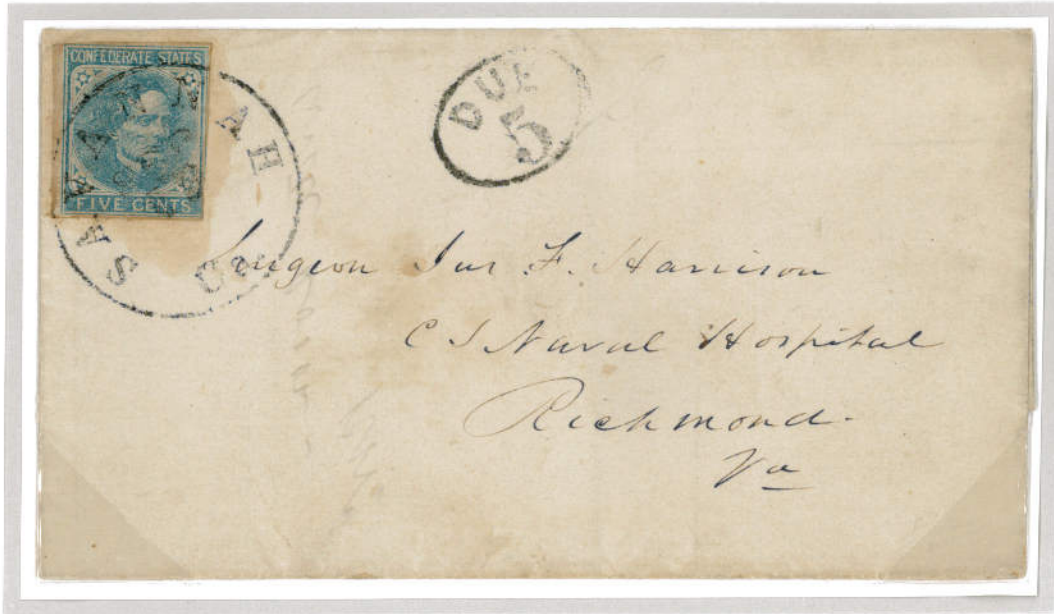 CONFEDERATE STATES
FIVE CENTS
SAVANNAH
Ga.
DUE
5
Surgeon Jas. F. Harrison
C S Naval Hospital
Richmond.
Va